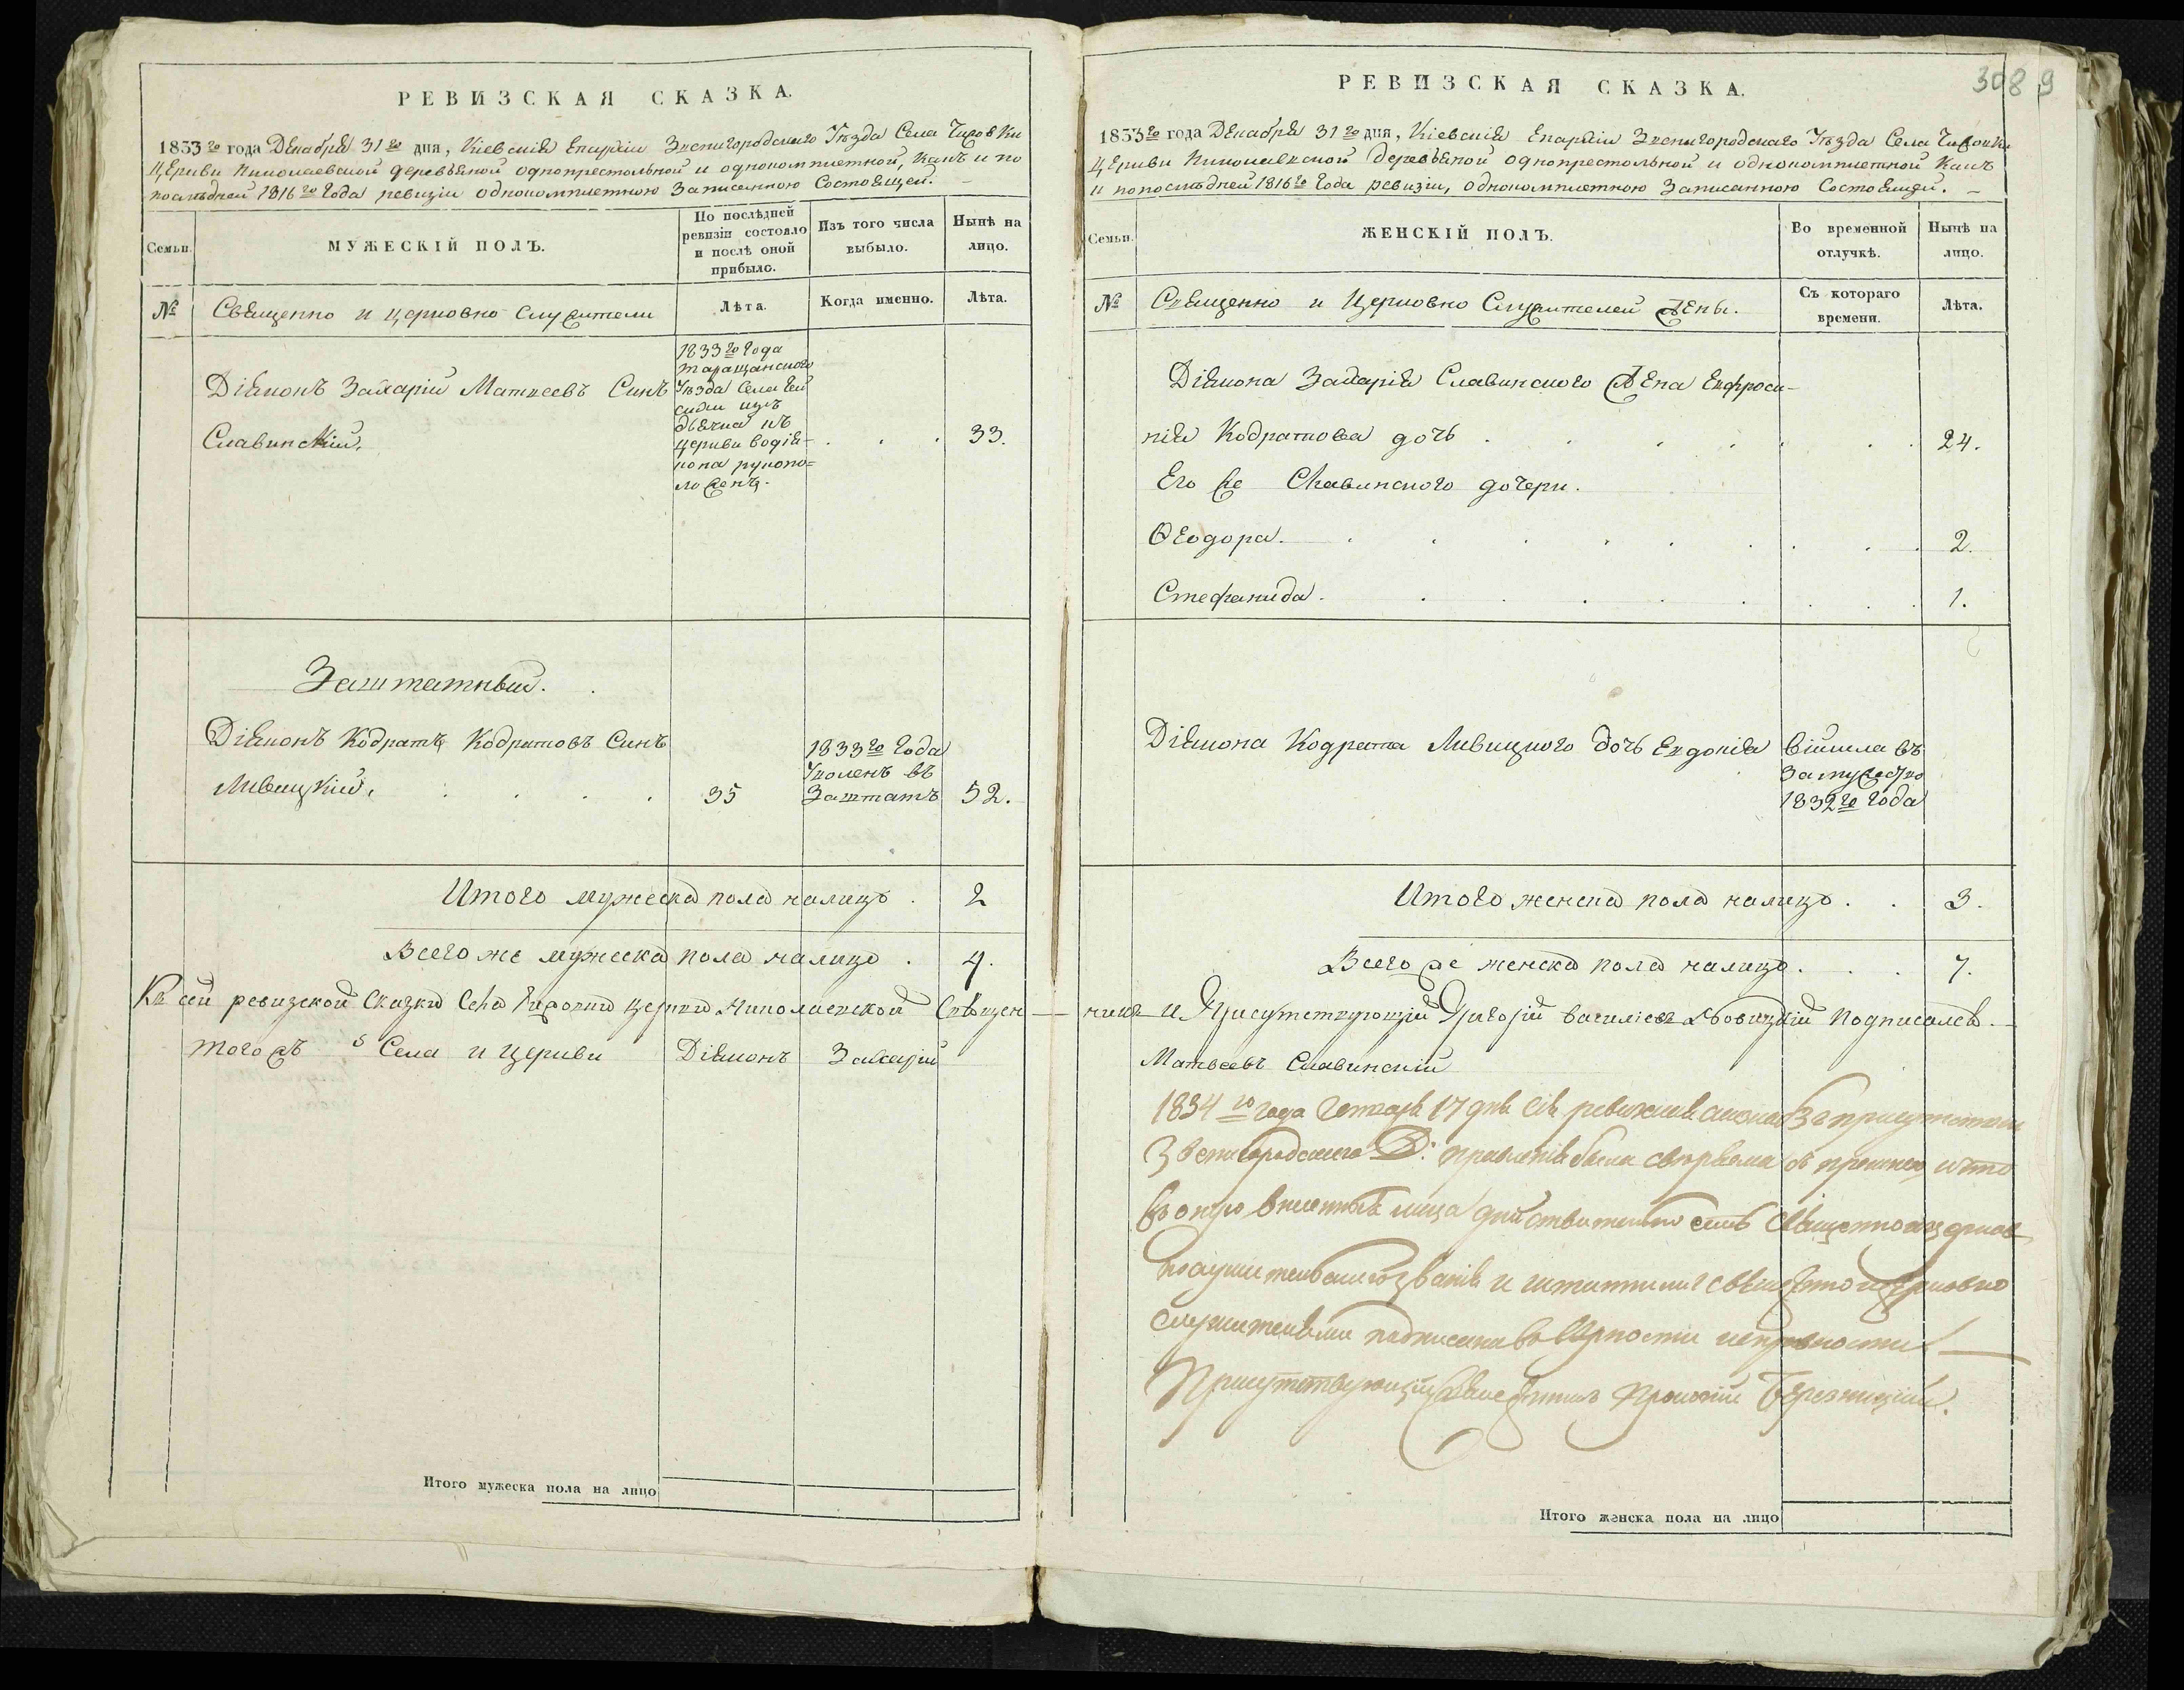 РЕВИЗСКАЯ СКАЗКА.
1833го года Декабря 31го дня, Кіевскія Епархіи Звенигородскаго Уѣзда Села Чижовки
Церкви Николаевской деревѣяной однопрестольной и однокомплетной, какъ и по
послѣдней 1816го Года ревизіи однокомплетною Записанною Состоящей.
Семьи.
МУЖЕСКІЙ ПОЛЪ.
По послѣдней ревизіи состояло и послѣ оной прибыло.
Изъ того числа выбыло.
Нынѣ на лицо.
№
Священно и церковно служители
Лѣта.
Когда именно.
Лѣта.
Діяконъ Захарій Матвеевъ Синъ
Славинскій.
1833го Года
таращанского
Уѣзда Села
изъ
дьячка къ
церкви в діа-
кона рукопо=
ложенъ.
33.
Заштатный.
Діяконъ Кодратъ Кодратовъ Синъ
Ливицкій.
35
1833го Года
Уволенъ въ
Заштатъ
52.
Итого мужеска пола налицо. 2
Всего же мужеска пола налицо. 4.
Къ сей ревизской Сказки Села Чижовки церкви Николаевской Священ-
того жъ Села и Церкви Діяконъ Захарій
Итого мужеска пола на лицо
РЕВИЗСКАЯ СКАЗКА.
308 9
1833го года Декабря 31го дня, Кіевскія Епархіи Звенигородскаго Уѣзда Села Чижовки
Церкви Николаевской деревѣяной однопрестольной и однокомплетной какъ
и по послѣдней 1816го Года ревизіи, однокомплетною Записанною Состоящей.
Семьи.
ЖЕНСКІЙ ПОЛЪ.
Во временной отлучкѣ.
Нынѣ на лицо.
№
Священно и Церковно Служителей Жены.
Съ котораго времени.
Лѣта.
Діякона Захарія Славинского Жена Евфроси-
нія Кодратова дочь 24.
Его же Славинского дочери.
Ѳеодора. 2.
Стефанида. 1.
Діякона Кодрата Ливицкого дочь Евдокія
війшла въ
Замужество
1832го Года
Итого женска пола налицо. 3.
Всего же женска пола налицо. 7.
никъ и Присутствующій Григорій Василіевъ Подписался.
Матвеевъ Славинскій
1834го года Генваря 17 дня сія ревизская сказка въ присутствіи
Звенигородскаго Д: правленія была сверена съ прежнею и что
въ оную внесенныя лица дѣйствительно суть Священно и церков
но служительского званія и священно и церковно
служителями подписана въ верности
Присутствующій Священникъ